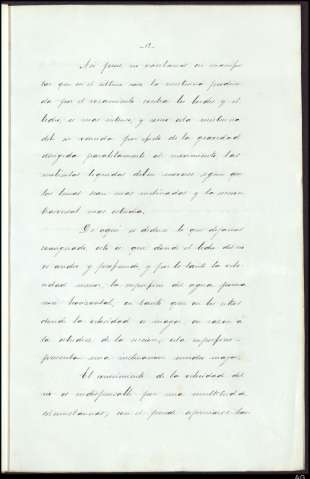 -12-
Así pues, no vacilamos en manifes
tar que en el último caso la resistencia produci-
da por el rozamiento contra los bordes y el
lecho, es mas intensa, y como esta resistencia
del es vencida por efecto de la gravedad
dirigida paralelamente al movimiento, las
moléculas líquidas deben moverse según que
los lineas sean mas inclinadas y la seccion
trasversal mas estrecha.
De aquí se deduce lo que dejamos
consignado, esto es que donde el lecho del rio
es ancho y profundo y por lo tanto la velo-
cidad menor, la superficie del agua forma
casi horizontal, en tanto que en los sitios
donde la velocidad es mayor en razon á
la estrechez de la seccion, esta superficie re-
presenta una inclinacion mucho mayor.
El conocimiento de la velocidad del
rio es indispensable por una multitud de
circunstancias, como se puede apreciarse